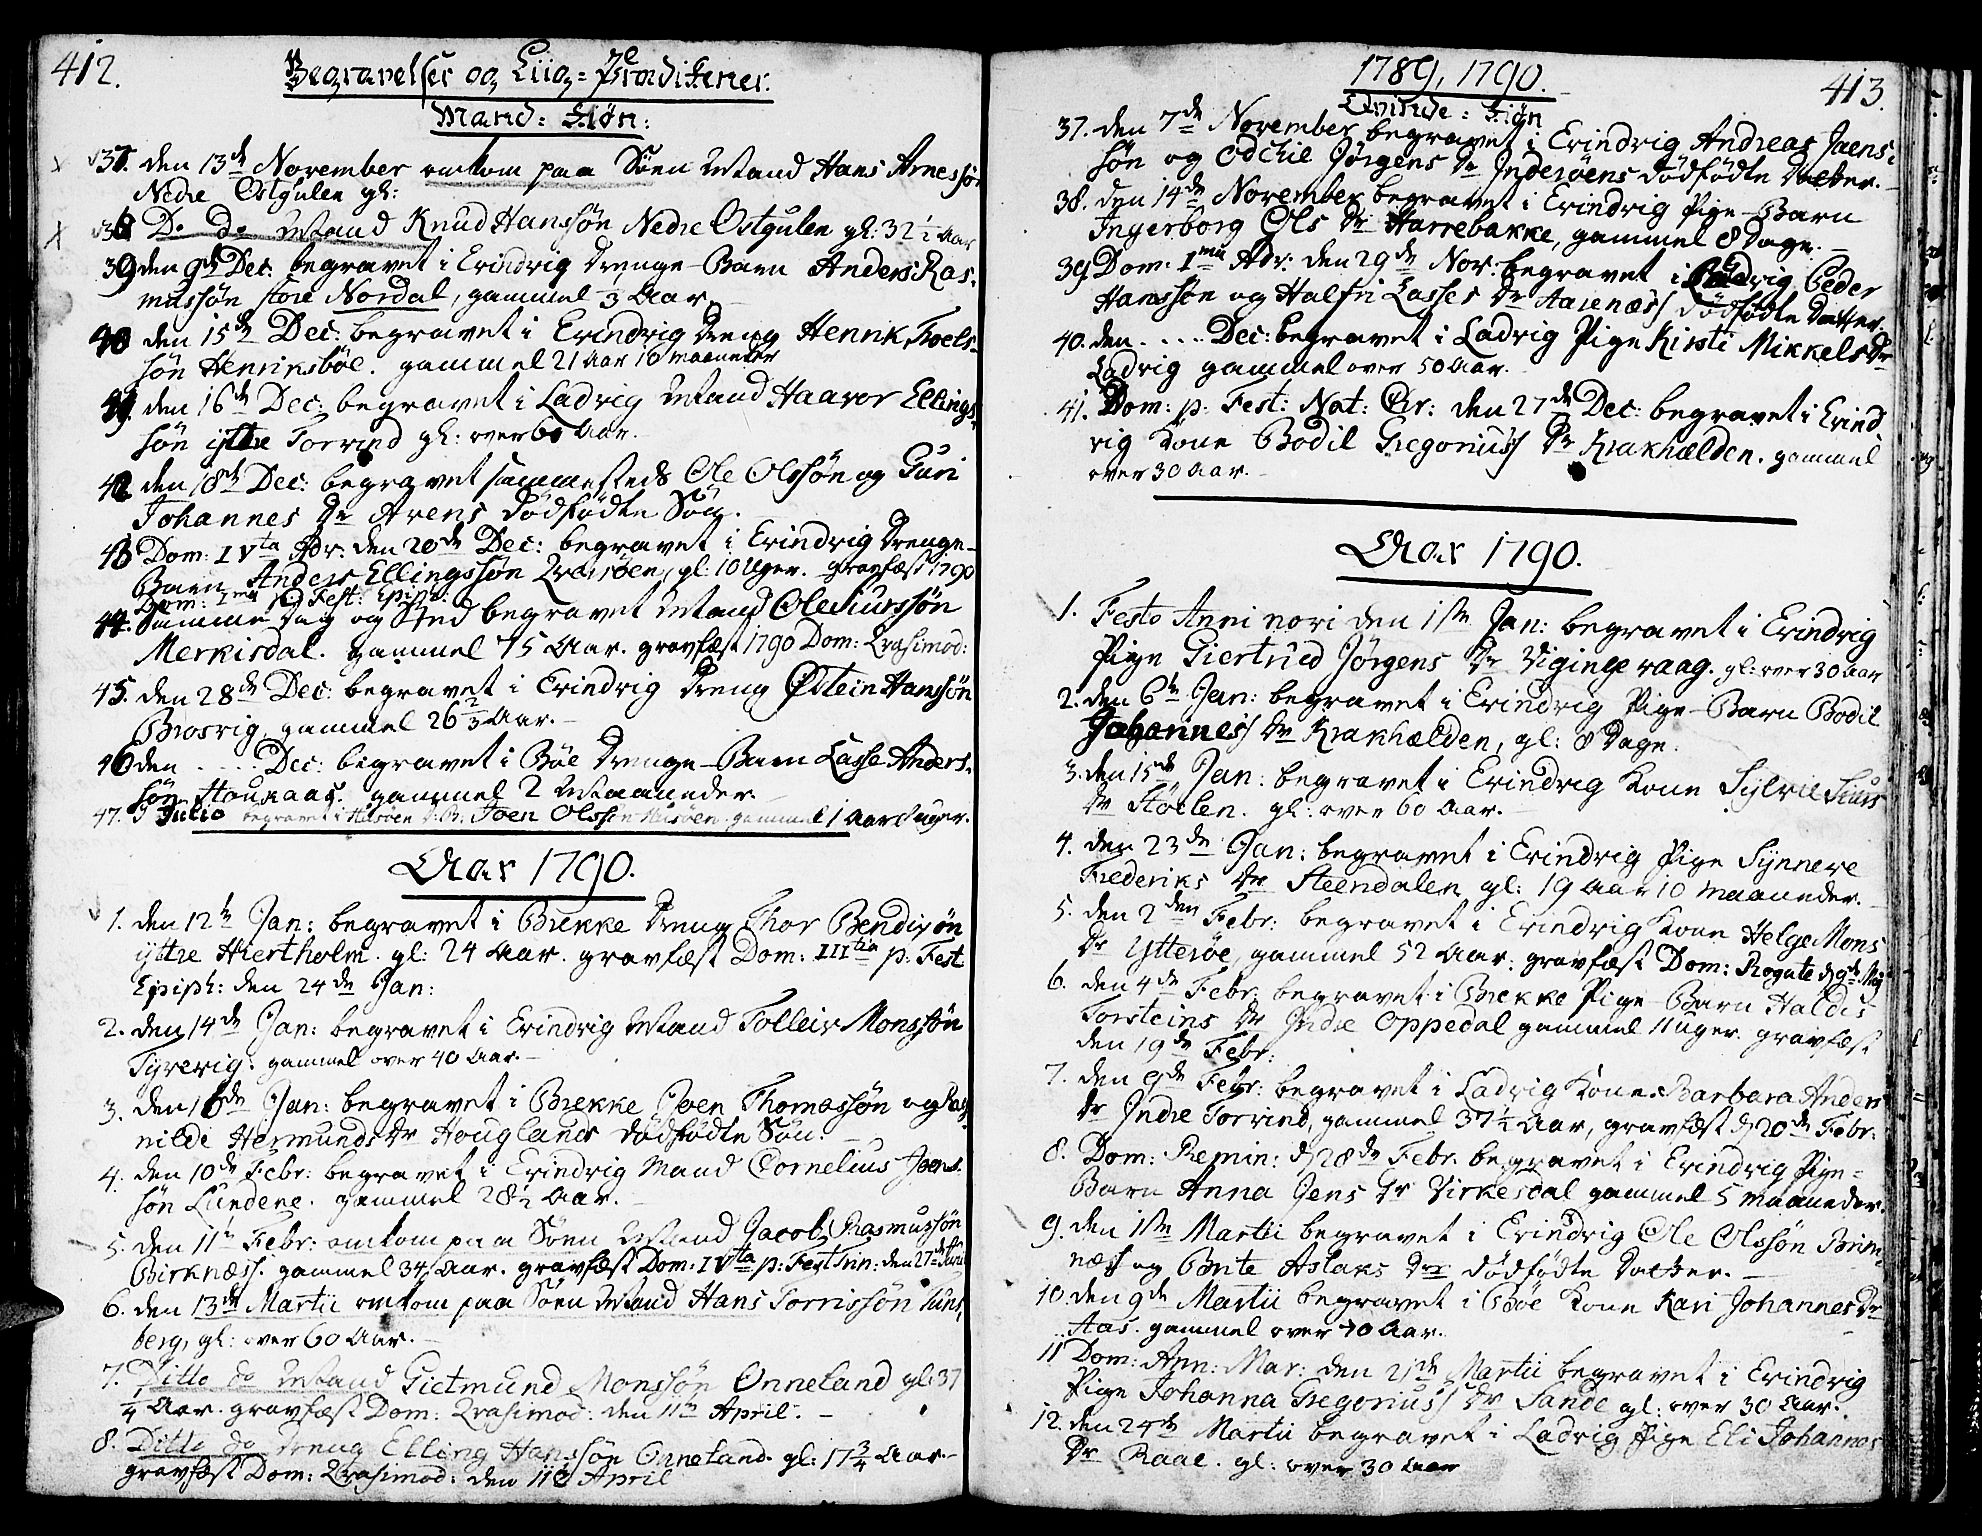 412.
Begravelser og Liig-Prædikener.
Mand-Kiøn:
37. den 13de November omkom paa Søen Mand Hans Arnessøn
Nedre Ostgulen gl:
38 Do do Mand Knud Hanssøn Nedre Ostgulen gl: 32 1/2 Aar
39 den 9de Dec: begravet i Evindvig Drenge-Barn Anders Ras-
mussøn store Nordal, gammel 1/3 Aar.
40 den 15de Dec: begravet i Evindvig Dreng Henrik Troels-
søn Henriksbøe. gammel 21 Aar 10 maaneder
41. den 16de Dec: begravet i Ladvig Mand Haavor Ellings-
søn yttre Torvind gl: over 60 Aar.
42 den 18de Dec: begravet sammesteds Ole Olssøn og Guri
Johannes Dr Avens dødfødte Søn.
43 Dom: IVta Adv: den 20de Dec: begravet i Evindvig Drenge-
Barn Anders Ellingssøn Qversøen, gl: 10 Uger. gravfæst 1790
Dom: Ima p. Fest: Epiph:
44. Samme Dag og Sted begravet Mand Ole Siurssøn
Merkisdal. gammel 75 Aar. gravfæst 1790 Dom: Qvasimod:
45. den 28de Dec: begravet i Evindvig Dreng Østein Hanssøn
Brosvig, gammel 26 2/3 Aar.
46 den .... Dec: begravet i Bøe Drenge-Barn Lasse Anders-
søn Staukaas. gammel 2 Maaneder.
47. 3 Julio begravet i Husøen Joen Olssøn Husøen gammel 1 Aar uger.
Aar 1790.
1. den 12te Jan: begravet i Brekke Dreng Thor Bendixsøn
yttre Hiertholm. gl: 24 Aar. gravfæst Dom: IIItia p: Fest
Epiph: den 24de Jan:
2. den 14de Jan: begravet i Evindvig Mand Tolleiv Monssøn
Tyvevig: gammel over 40 Aar.
3. den 16de Jan: begravet i Brekke Joen Thomassøn og Rag-
nilde Hermunds Dr Houglands dødfødte Søn.
4. den 10de Febr: begravet i Evindvig Mand Cornelius Joens-
søn Lundene. gammel 28 1/2 Aar.
5. den 11te Febr: omkom paa Søen Mand Jacob Rasmussøn
Birknæss. gammel 34 Aar. gravfæst Dom: IVta p: Fest Trin: den 27de Junii
6. den 13de Martii omkom paa Søen Mand Hans Torrissøn Tuns-
berg, gl: over 60 Aar.
7. Ditto do Mand Gietmund Monssøn Onneland gl: 37
1/4 Aar. gravfæst Dom: Qvasimod: den 11te April.
8. Ditto do Dreng Elling Hanssøn Onneland. gl: 17 3/4 Aar.
gravfæst Dom: Qvasimod: den 11te April
1789, 1790.
413.
Qvinde-Kiøn
37. den 7de November begravet i Evindvig Andreas Joens-
søn og Odchie Jørgens Dr Inderøens dødfødte Datter.
38. den 14de November begravet i Evindvig Pige-Barn
Ingerborg Ols Dr Harrebakke, gammel 8 Dage.
39 Dom: Ima Adv: den 29de Nov: begravet i Evindvig Peder
Hanssøn og Halfri Lasses Dr Aarenæss dødfødte Datter.
40. den .... Dec: begravet i Ladvig Pige Kirsti Mikkels Dr
Ladvig gammel over 50 Aar.
41. Dom: p: Fest: Nat: Chr: den 27de Dec: begravet i Evind-
vig Kone Bodil Gregoriuss Dr Krakhælden. gammel
over 30 Aar.
Aar 1790.
1. Festo Anni novi den 1ste Jan: begravet i Evindvig
Pige Giertrued Jørgens Dr Viginge vaag. gl: over 30 Aar
2. den 6te Jan: begravet i Evindvig Pige-Barn Bodil
Johanness Dr Krakhælden, gl: 8 Dage.
3. den 15de Jan: begravet i Evindvig Kone Sylvie Siurs
Dr Støelen. gl: over 60 Aar.
4. den 23de Jan: begravet i Evindvig Pige Synneve
Frederiks Dr Steendalen, gl: 19 Aar 10 maaneder.
5. den 2den Febr: begravet i Evindvig Kone Helge Mons
Dr Ytterøe, gammel 52 Aar. gravfæst Dom: Rogate d 9de Maj
6. den 4de Febr: begravet i Brekke Pige-Barn Haldis
Torsteins Dr Indre Oppedal gammel 11 uger. gravfæst
den 19de Febr:
7. den 9de Febr: begravet i Ladvig Kone Barbara Anders
Dr Indre Torvind, gammel 37 1/2 Aar, gravfæst d 20de Febr:
8. Dom: Remin: d 28de Febr: begravet i Evindvig Pige-
Barn Anna Jens Dr Virkesdal gammel 5 maaneder.
9. den 1ste Martii begravet i Evindvig Ole Olssøn Brim-
næss og Brite Aslaks Dr dødfødte Datter.
10. den 9de Martii begravet i Bøe Kone Kari Johannes Dr
Aas. gammel over 70 Aar.
11 Dom: Ann: Mar: den 21de Martii begravet i Evindvig
Pige Johanna Gregoriuss Dr Sande gl: over 30 Aar.
12. den 24de Martii begravet i Ladvig Pige Eli Johannes
Dr Raae. gl: over 30 Aar